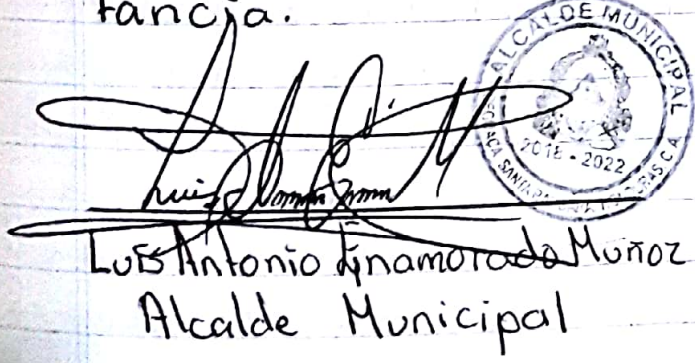 tancia.
ALCALDE MUNICIPAL
2018 - 2022
Luis
Luis Antonio Enamorado Muñoz
Alcalde Municipal